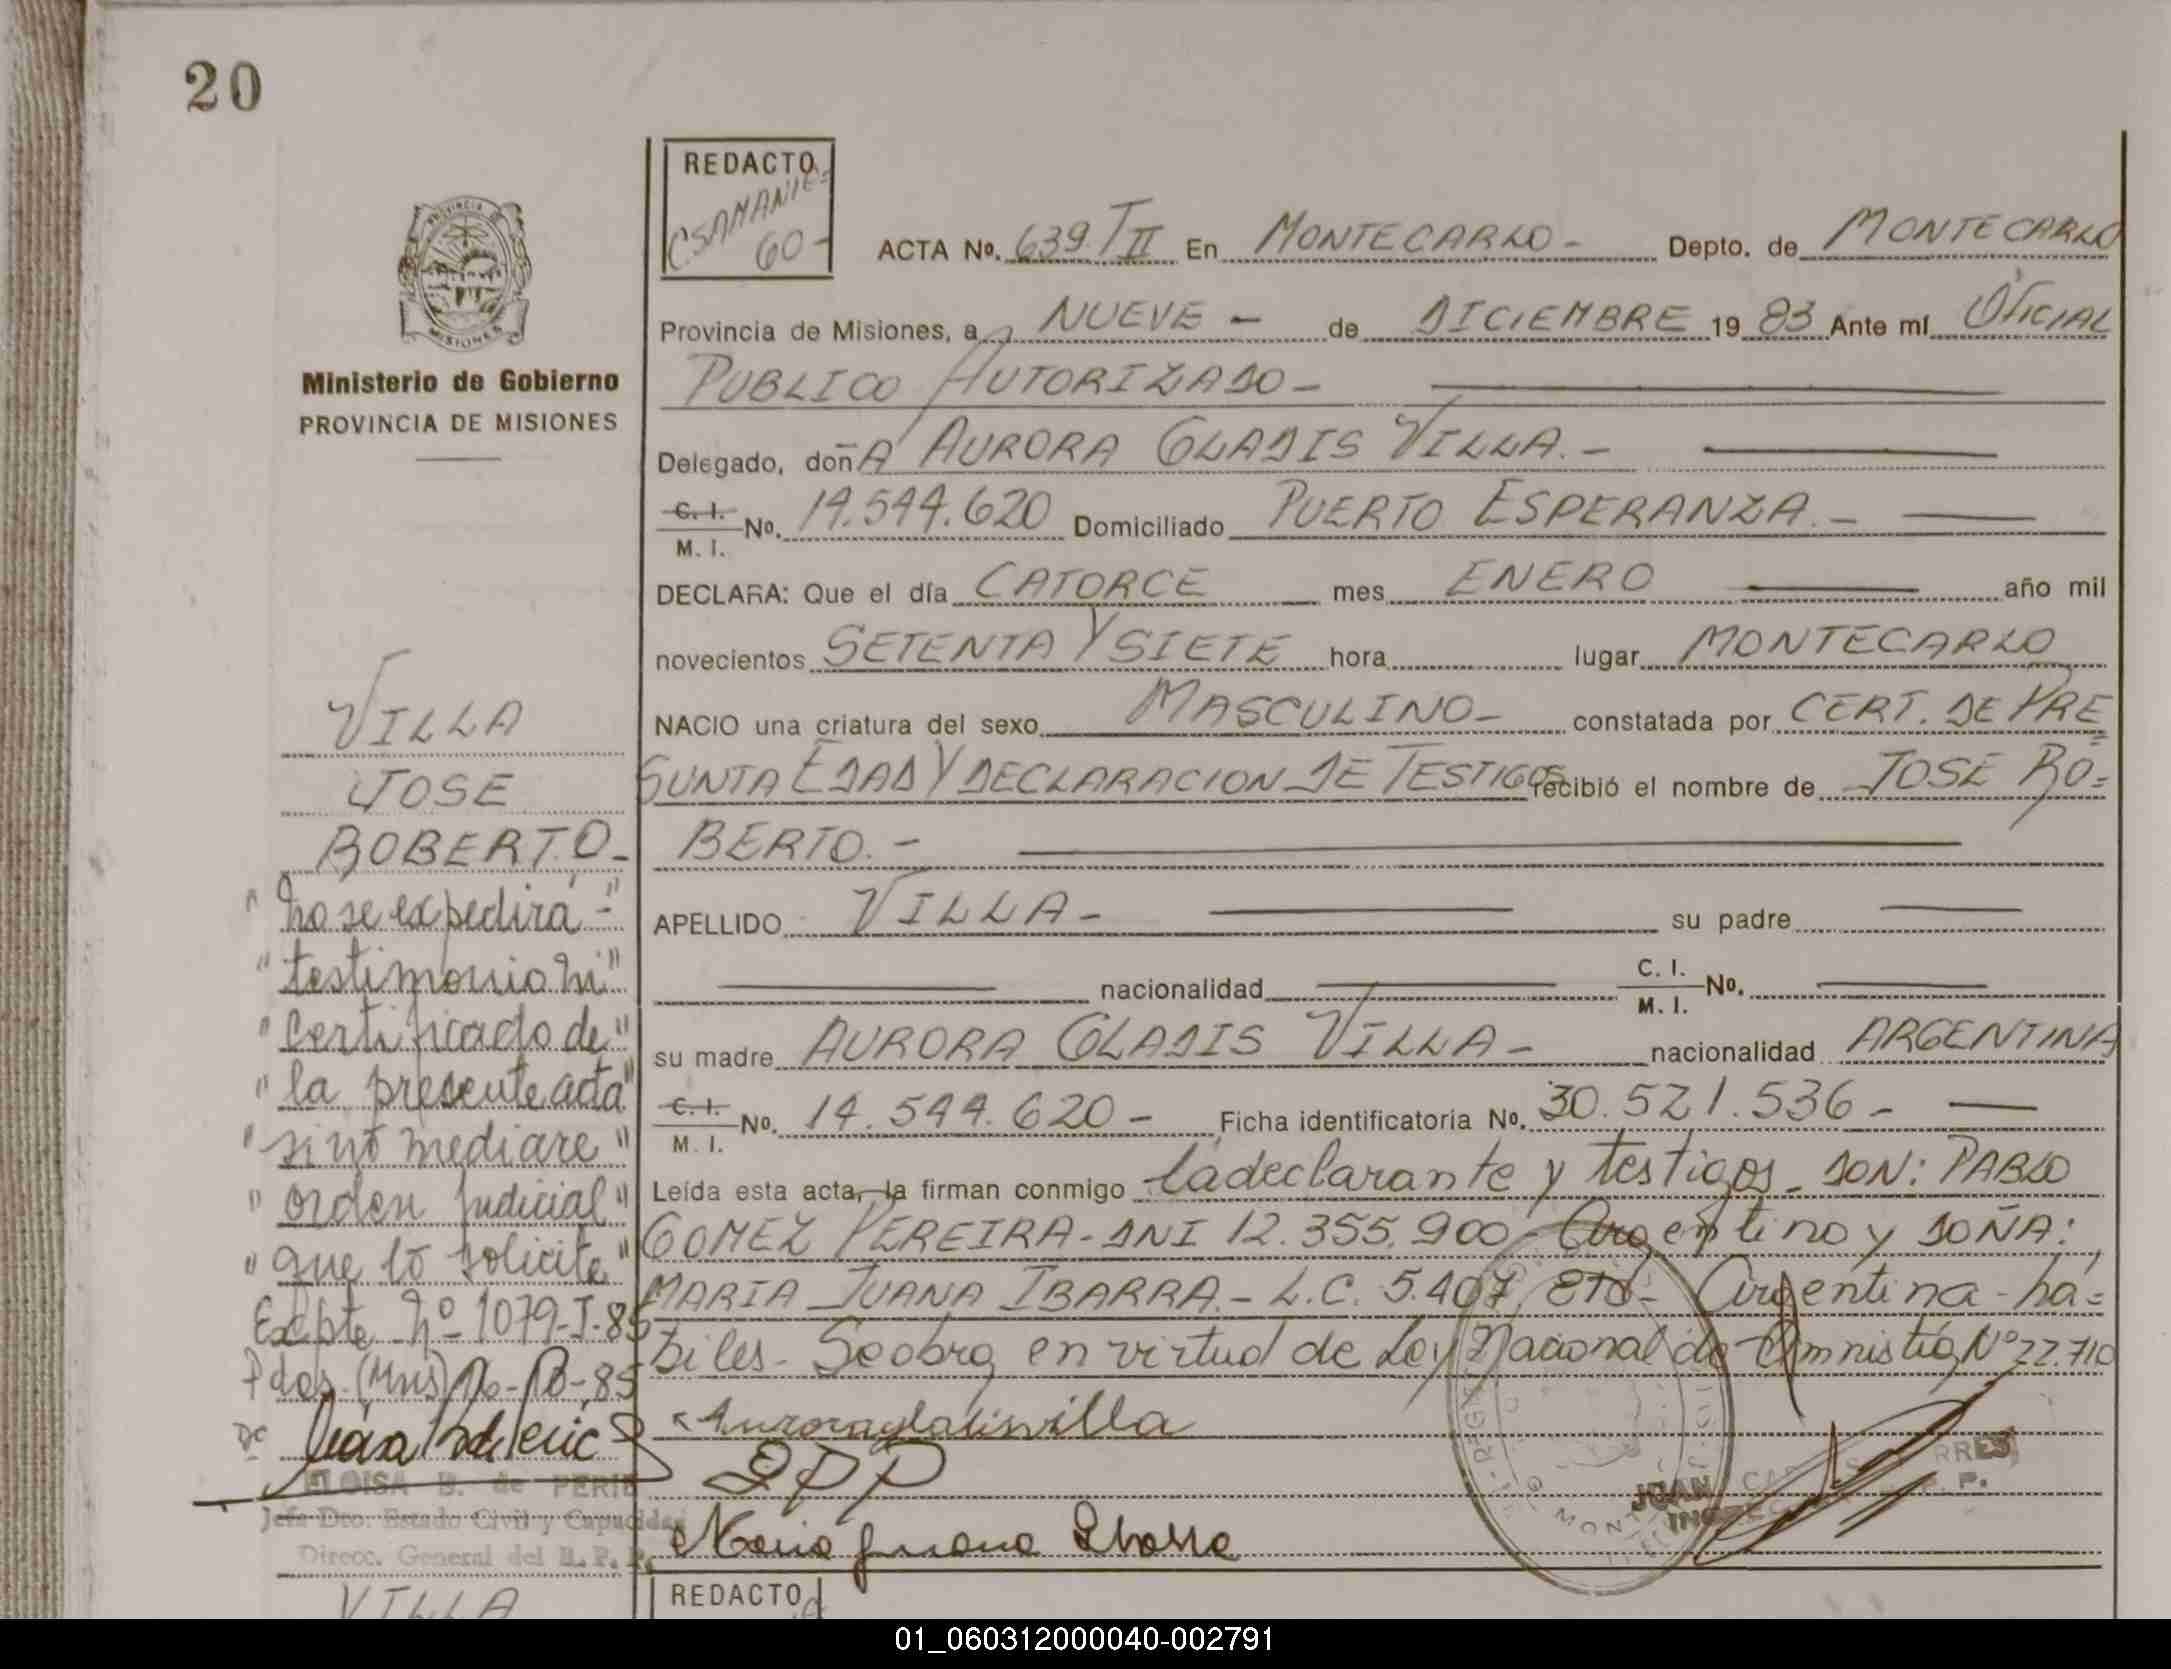 20
REDACTO
CSAMANIE=
GO-
ACTA No. 639.T II En MONTECARLO- Depto. de MONTECARLO
PROVINCIA DE
MISIONES
Ministerio de Gobierno
PROVINCIA DE MISIONES
Provincia de Misiones, a NUEVE - de DICIEMBRE 19 83 Ante mí OFICIAL
PUBLICO AUTORIZADO-
Delegado, doñA AURORA GLADIS VILLA.-
C. I.
M. I. No. 14.544.620 Domiciliado PUERTO ESPERANZA.-
DECLARA: Que el día CATORCE mes ENERO año mil
novecientos SETENTA Y SIETE hora lugar MONTECARLO
NACIO una criatura del sexo MASCULINO- constatada por CERT. DE PRE=
SUNTA EDAD Y DECLARACION DE TESTIGOS recibió el nombre de JOSE RO=
BERTO.-
APELLIDO VILLA- su padre
nacionalidad C. I.
M. I. No.
su madre AURORA GLADIS VILLA- nacionalidad ARGENTINA
C. I.
M. I. No. 14.544.620- Ficha identificatoria No. 30.521.536-
Leída esta acta, la firman conmigo la declarante y testigos- DON: PABLO
GOMEZ PEREIRA- DNI 12.355.900- Argentino y DOÑA:
MARIA JUANA IBARRA.- L.C. 5.407. Argentina- há=
biles- Se obra en virtud de Ley Nacional de Amnistía Nº 22.710
Aurora gladis villa
Maria Juana Ibarra
JUAN CARLOS TORRES
VILLA
JOSE
ROBERTO-
"no se expedirá-"
"testimonio ni"
"certificado de"
"la presente acta"
"si no mediare"
"orden judicial"
"que lo solicite"
Expte nº 1079-I-85
Pdas. (Mns)
ELOISA B. de PERIE
Jefa Dto. Estado Civil y Capacidad
Direcc. General del R. P. P.
VILLA
REDACTO
01_060312000040-002791